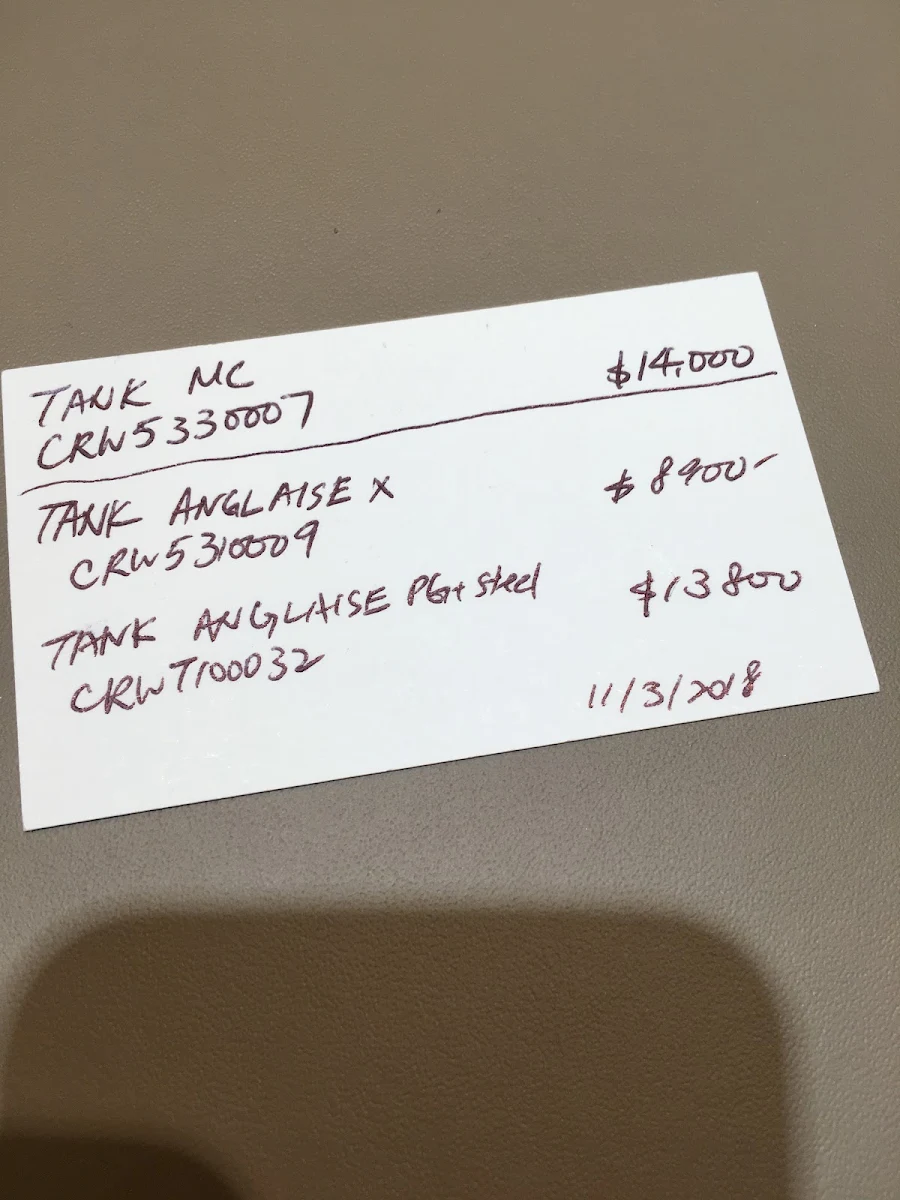 TANK MC $14,000
CRW5330007
TANK ANGLAISE X $8900-
CRW5310009
TANK ANGLAISE PG+ Steel $13800
CRWT100032
11/3/2018